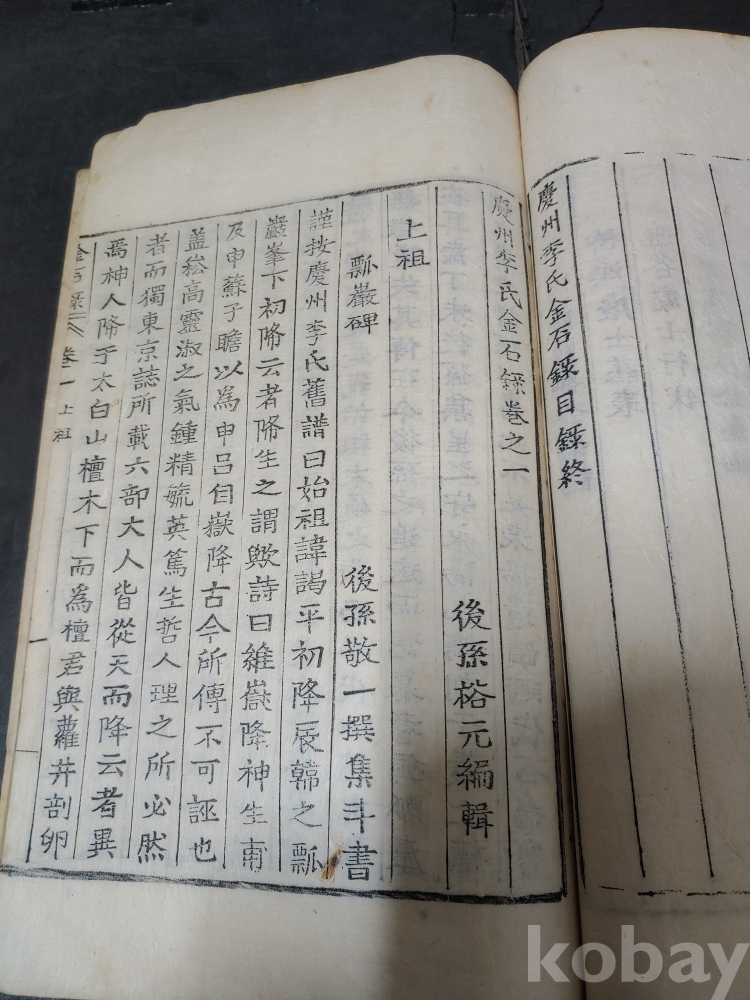 慶州李氏金石錄目錄終
慶州李氏金石錄卷之一
後孫裕元編輯
上祖
瓢巖碑
後孫敬一撰集斗書
謹按慶州李氏舊譜曰始祖諱謁平初降辰韓之瓢
巖峯下初降云者降生之謂歟詩曰維嶽降神生甫
及申蘇子瞻以為申呂自嶽降古今所傳不可誣也
盖崧高靈淑之氣鍾精毓英篤生哲人理之所必然
者而獨東京誌所載六部大人皆從天而降云者異
焉神人降于太白山檀木下而為檀君與蘿井剖卵
金石錄 卷一 上祖
一
kobay